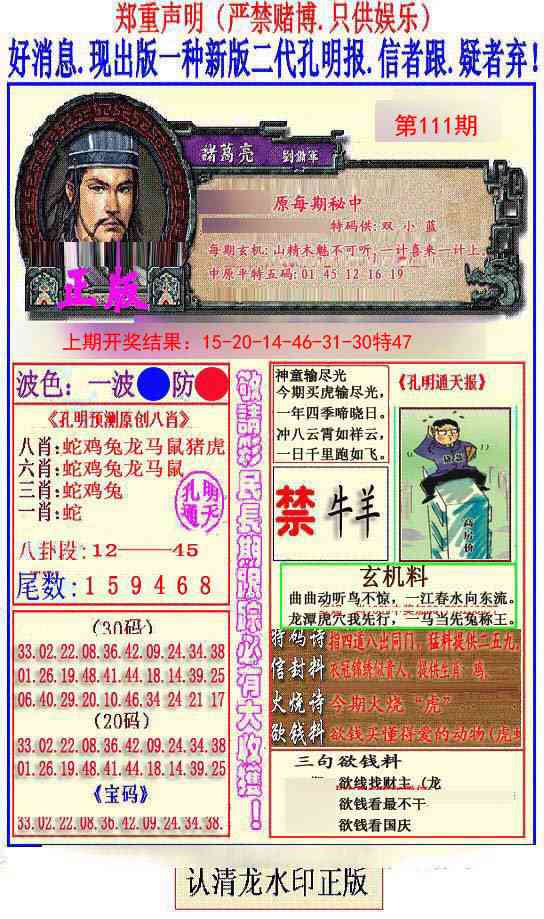 郑重声明（严禁赌博.只供娱乐）
好消息.现出版一种新版二代孔明报.信者跟.疑者弃!
第111期
諸葛亮
原每期秘中
特码供:双 小 蓝
每期玄机:山精木魅不可听,一计喜来一计上.
中原平特五码:01 45 12 16 19
正版
上期开奖结果：15-20-14-46-31-30特47
波色：一波 防
《孔明预测原创八肖》
八肖:蛇鸡兔龙马鼠猪虎
六肖:蛇鸡兔龙马鼠
三肖:蛇鸡兔
一肖:蛇
孔明通天
八卦段:12——45
尾数:159468
(30码)
33.02.22.08.36.42.09.24.34.38
01.26.19.48.41.44.18.14.39.25
06.40.29.20.10.46.34 24 21 17
(20码)
33.02.22.08.36.42.09.24.34.38
01.26.19.48.41.44.18.14.39.25
《宝码》
33.02.22.08.36.42.09.24.34.38.
敬請彩民長期跟踪必有大收獲！
神童输尽光
今期买虎输尽光，
一年四季啼晓日。
冲八云霄如祥云，
一日千里跑如飞。
《孔明通天报》
高房价
禁 牛羊
玄机料
曲曲动听鸟不惊，一江春水向东流。
龙潭虎穴我先行，一马当先兔称王。
特码诗 指四道八出同门，猛料提供二五九.
信封料 衣冠锦绣似贵人，提供生肖：鸡、
火烧诗 今期火烧“虎”
欲钱料 欲钱买懂得爱的动物(虎
三句欲钱料
欲线找财主（龙
欲钱看最不干
欲钱看国庆
认清龙水印正版